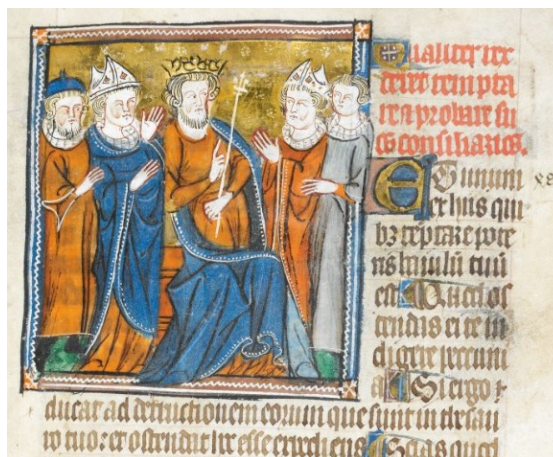 Qualiter rex
debet tempta
re et probare su
os consiliarios.
E unum
ex hiis qui
bz teptare pote
ris baiulū tuū
est
tendas ei te in
digere pecuni
a Si ergo
ducat ad destructionem eorum que sunt in thesau
ro tuo: et ostendat hec esse expediens Scias quod